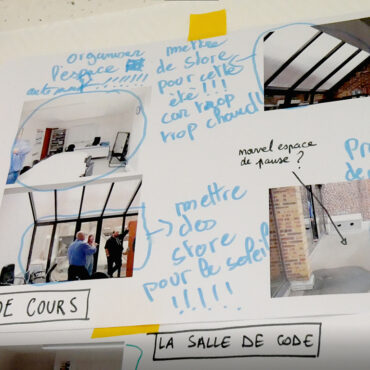 organiser
l'espace
autrement !!!!!!!
mettre
de store
pour cette
été !!!
car trop
trop chaud!
nouvel espace
de pause ?
mettre
des
store
pour le soleil
!!!!!!
DE COURS
LA SALLE DE CODE